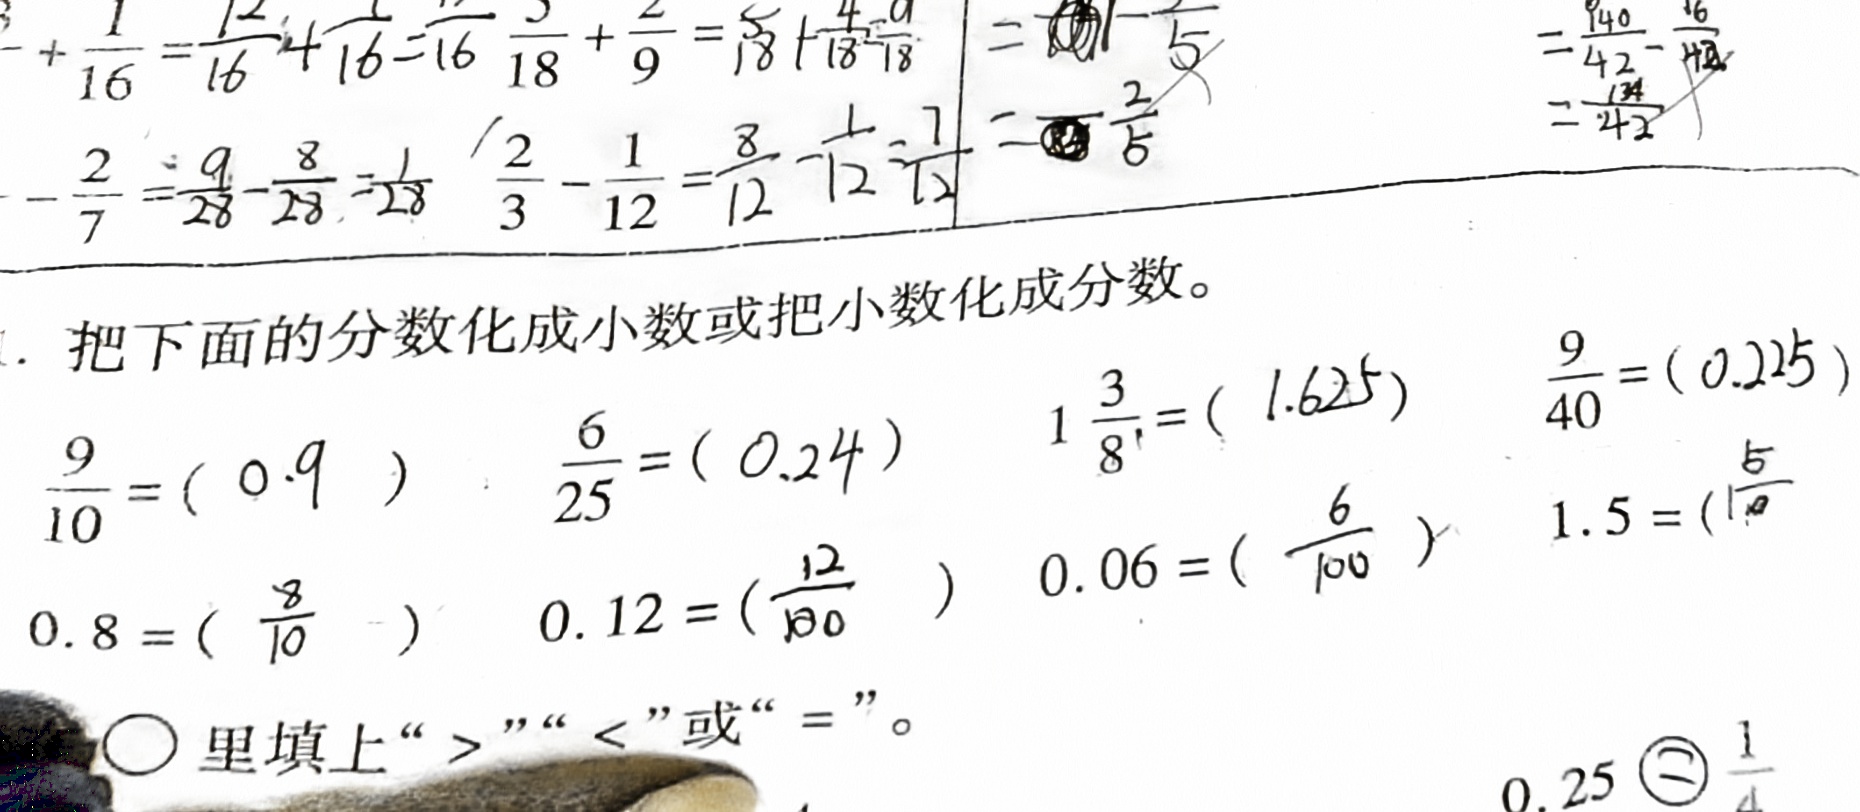 + 1/16 = 12/16 + 1/16 = /16 5/18 + 2/9 = 5/18 + 4/18 = 9/18
= 1 - /5
= 140/42 - 16/42
- 2/7 = 9/28 - 8/28 = 1/28 2/3 - 1/12 = 8/12 - 1/12 = 7/12
= 2/5
= 134/42
1. 把下面的分数化成小数或把小数化成分数。
9/10 = ( 0.9 ) 6/25 = ( 0.24 ) 1 3/8 = ( 1.625 ) 9/40 = ( 0.225 )
0.8 = ( 8/10 ) 0.12 = ( 12/100 ) 0.06 = ( 6/100 ) 1.5 = ( 1 5/10
○里填上“>”“<”或“=”。
0.25 = 1/4